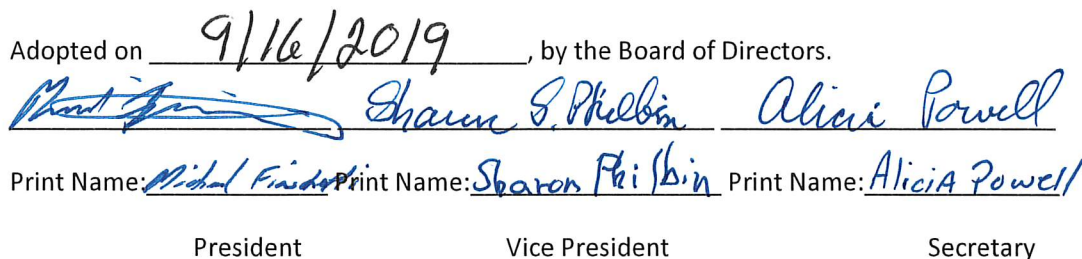 Adopted on 9/16/2019, by the Board of Directors.
Sharon S. Philbin Alicia Powell
Print Name: Michael Print Name: Sharon Philbin Print Name: Alicia Powell
President Vice President Secretary